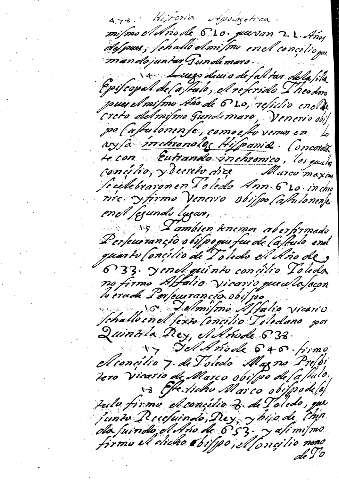 472. Historia Apologetica
mismo el Año de 610. pues an 22. Años
despues, se halla el mismo en el concilio que
mando juntar Gundemaro.
14 Luego devio de faltar de la silla
Episcopal de Castulo, el referido Theodoro
pues el mismo Año de 610, residio en el de
creto del mismo Gundemaro, Venerio obis
po Castulonense, como esto vemos en lo
aysa in chronolog. Hispaniæ. Concorda
te con Eutrando in chronico,
concilio, y decreto dize Marco maxim
se celebraron en Toledo Ann. 610. in
nic. y firmo Venerio obispo Castulonens
en el segundo lugar,
15 Tambien tienen aber firmado
Perseurancio obispo que fue de Castulo en el
quarto Concilio de Toledo el Año de
633. y en el quinto concilio Toleda
no firmo Asfalio vicario que a la saçon
lo era de Perseurancio obispo
16 I el mismo Asfalio vicario
se halla en el sexto Concilio Toledano por
Quintila, Rey, el Año de 638.
17 I el Año de 646. firmo
el concilio 7. de Toledo Magno Presbi
tero vicario de Marco obispo de Castulo,
18 El dicho Marco obispo de Cas
tulo firmo el concilio 8. de Toledo, que
junto Recesuindo, Rey, y hijo de Cin
dasuindo, el Año de 653. y asi mismo
firmo el dicho obispo, el Concilio nono
de To